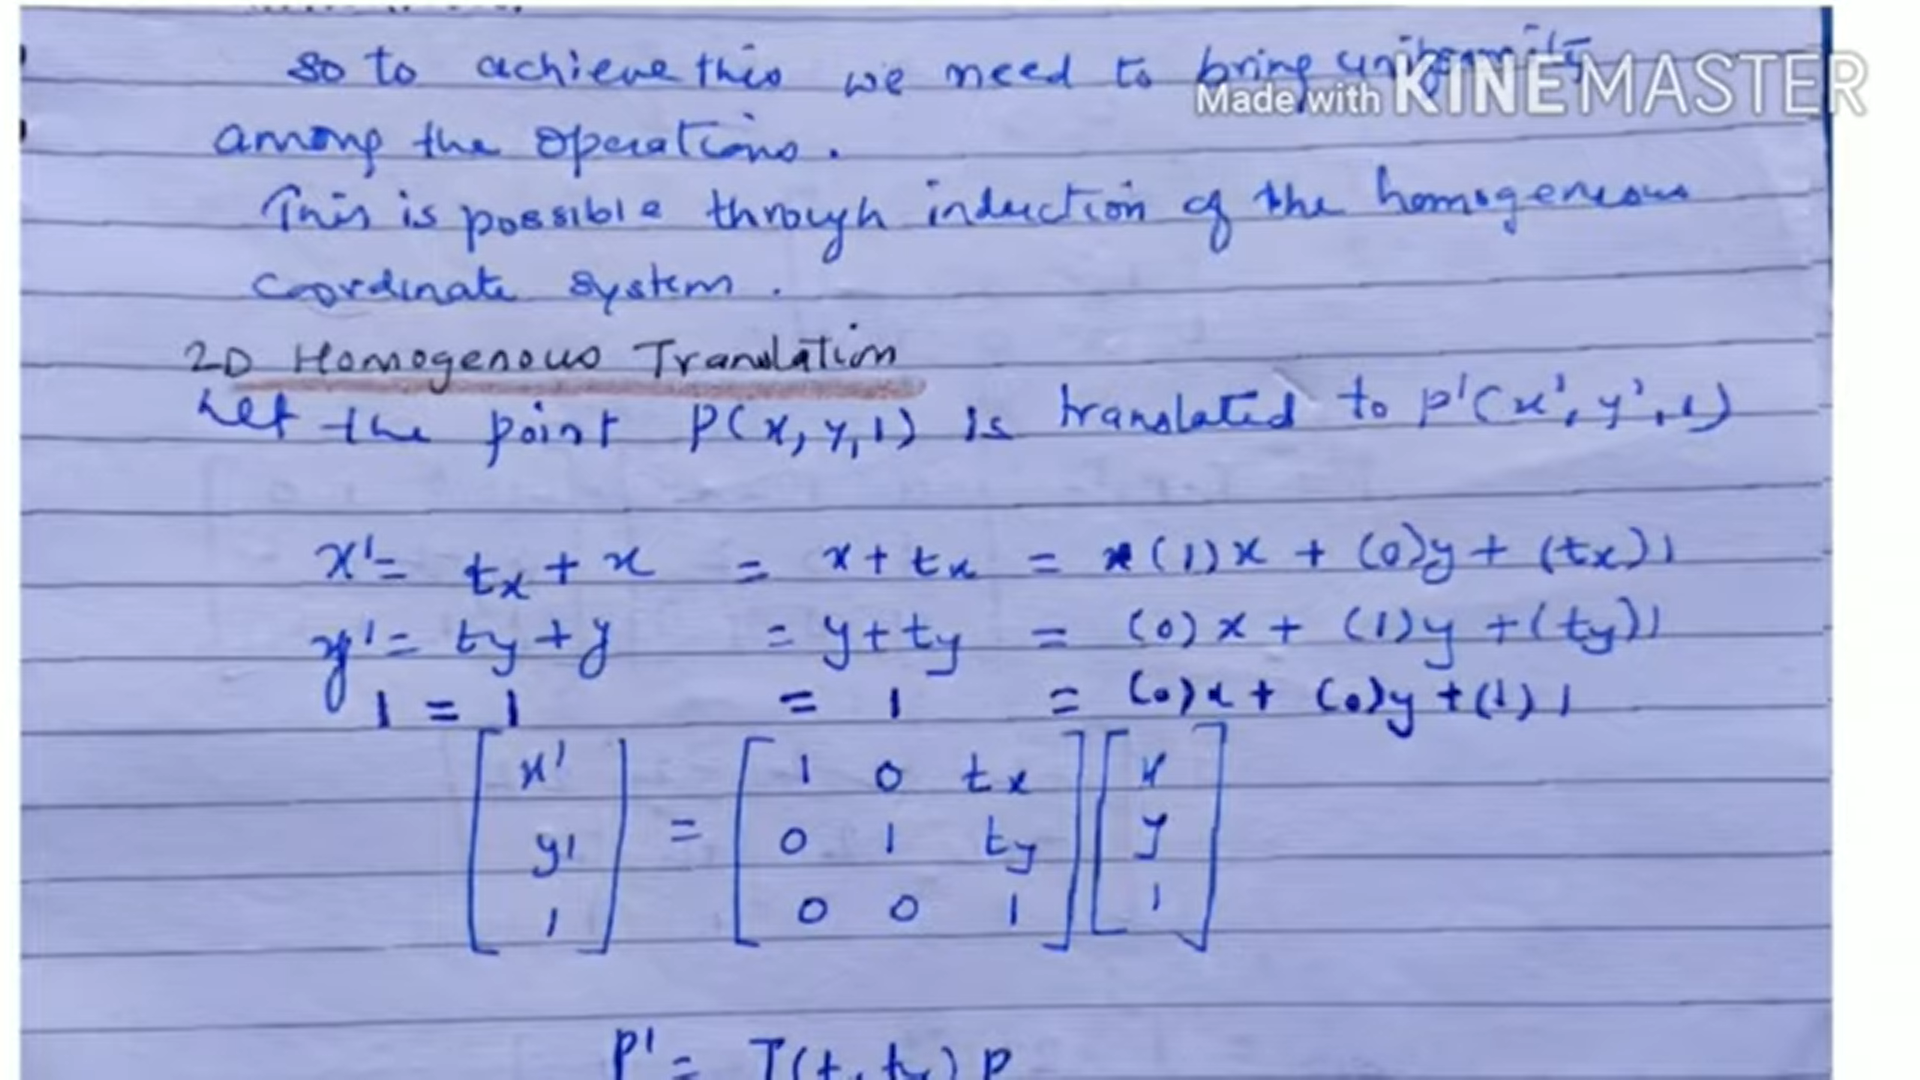 so to achieve this we need to bring uniformity
Made with KINEMASTER
among the operations.
This is possible through induction of the homogeneous
coordinate system.
2D Homogenous Translation
Let the point P(x, y, 1) is translated to P'(x', y', 1)
x' = tx + x = x + tx = (1)x + (0)y + (tx)1
y' = ty + y = y + ty = (0)x + (1)y + (ty)1
1 = 1 = 1 = (0)x + (0)y + (1)1
[x'] = [1 0 tx] [x]
[y'] [0 1 ty] [y]
[1] [0 0 1] [1]
P' = T(tx, ty) P